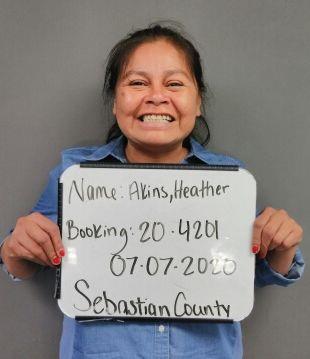 Name: Akins, Heather
Booking: 20-4201
07-07-2020
Sebastian County